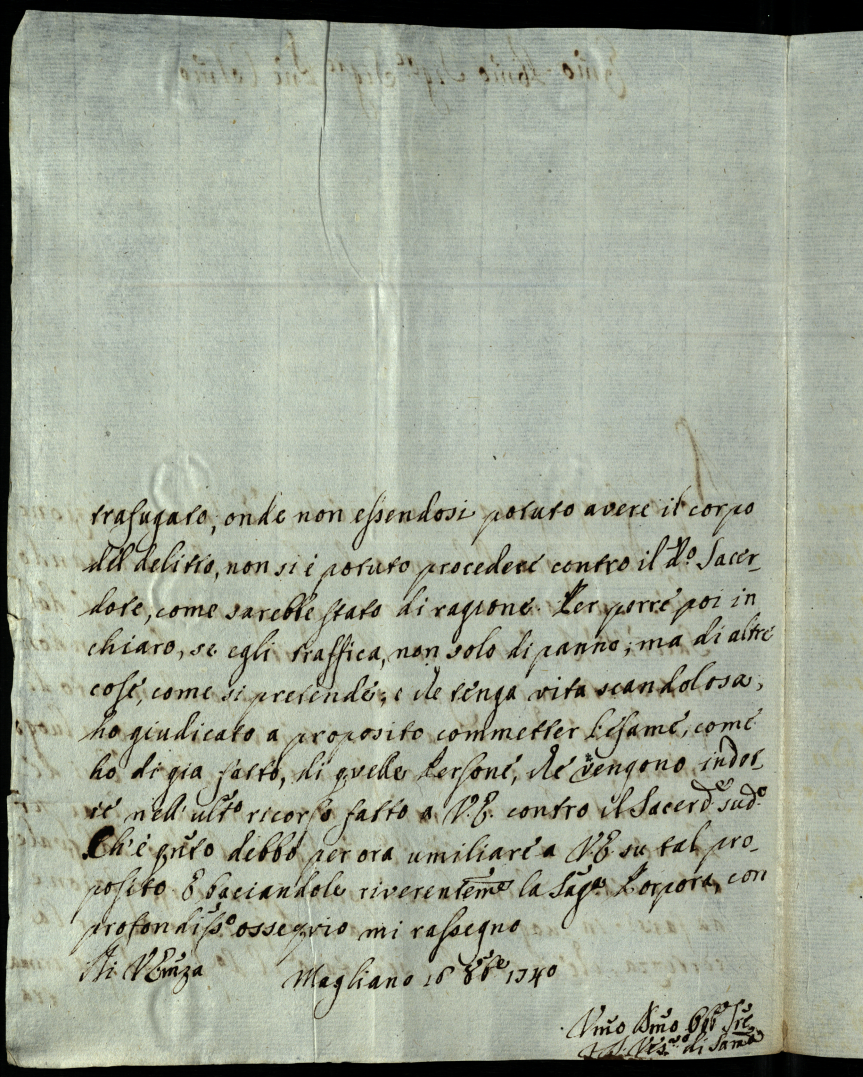 trafugato; onde non essendosi potuto avere il corpo
del delitto, non si è potuto procedere contro il d.o Sacer-
dote, come sarebbe stato di ragione. Per porre poi in
chiaro, se egli traffica, non solo di panno, ma di altre
cose, come si pretende, e che tenga vita scandolosa,
ho giudicato a proposito commetter l'esame, come
ho di già fatto, di quelle Persone, che vengono indot-
te nell'ult.o ricorso fatto a V.E. contro il Sacerd.e sud.o
Ch'è q̃nto debbo per ora umiliare a V.E. su tal pro-
posito. E baciandole riverentem.e la Sag.a Porpora, con
profondiss.o ossequio mi rassegno
Di V. Emñza Magliano 16 8bre 1740
Umo Dmo Obb.o Sre
Vesc.o di